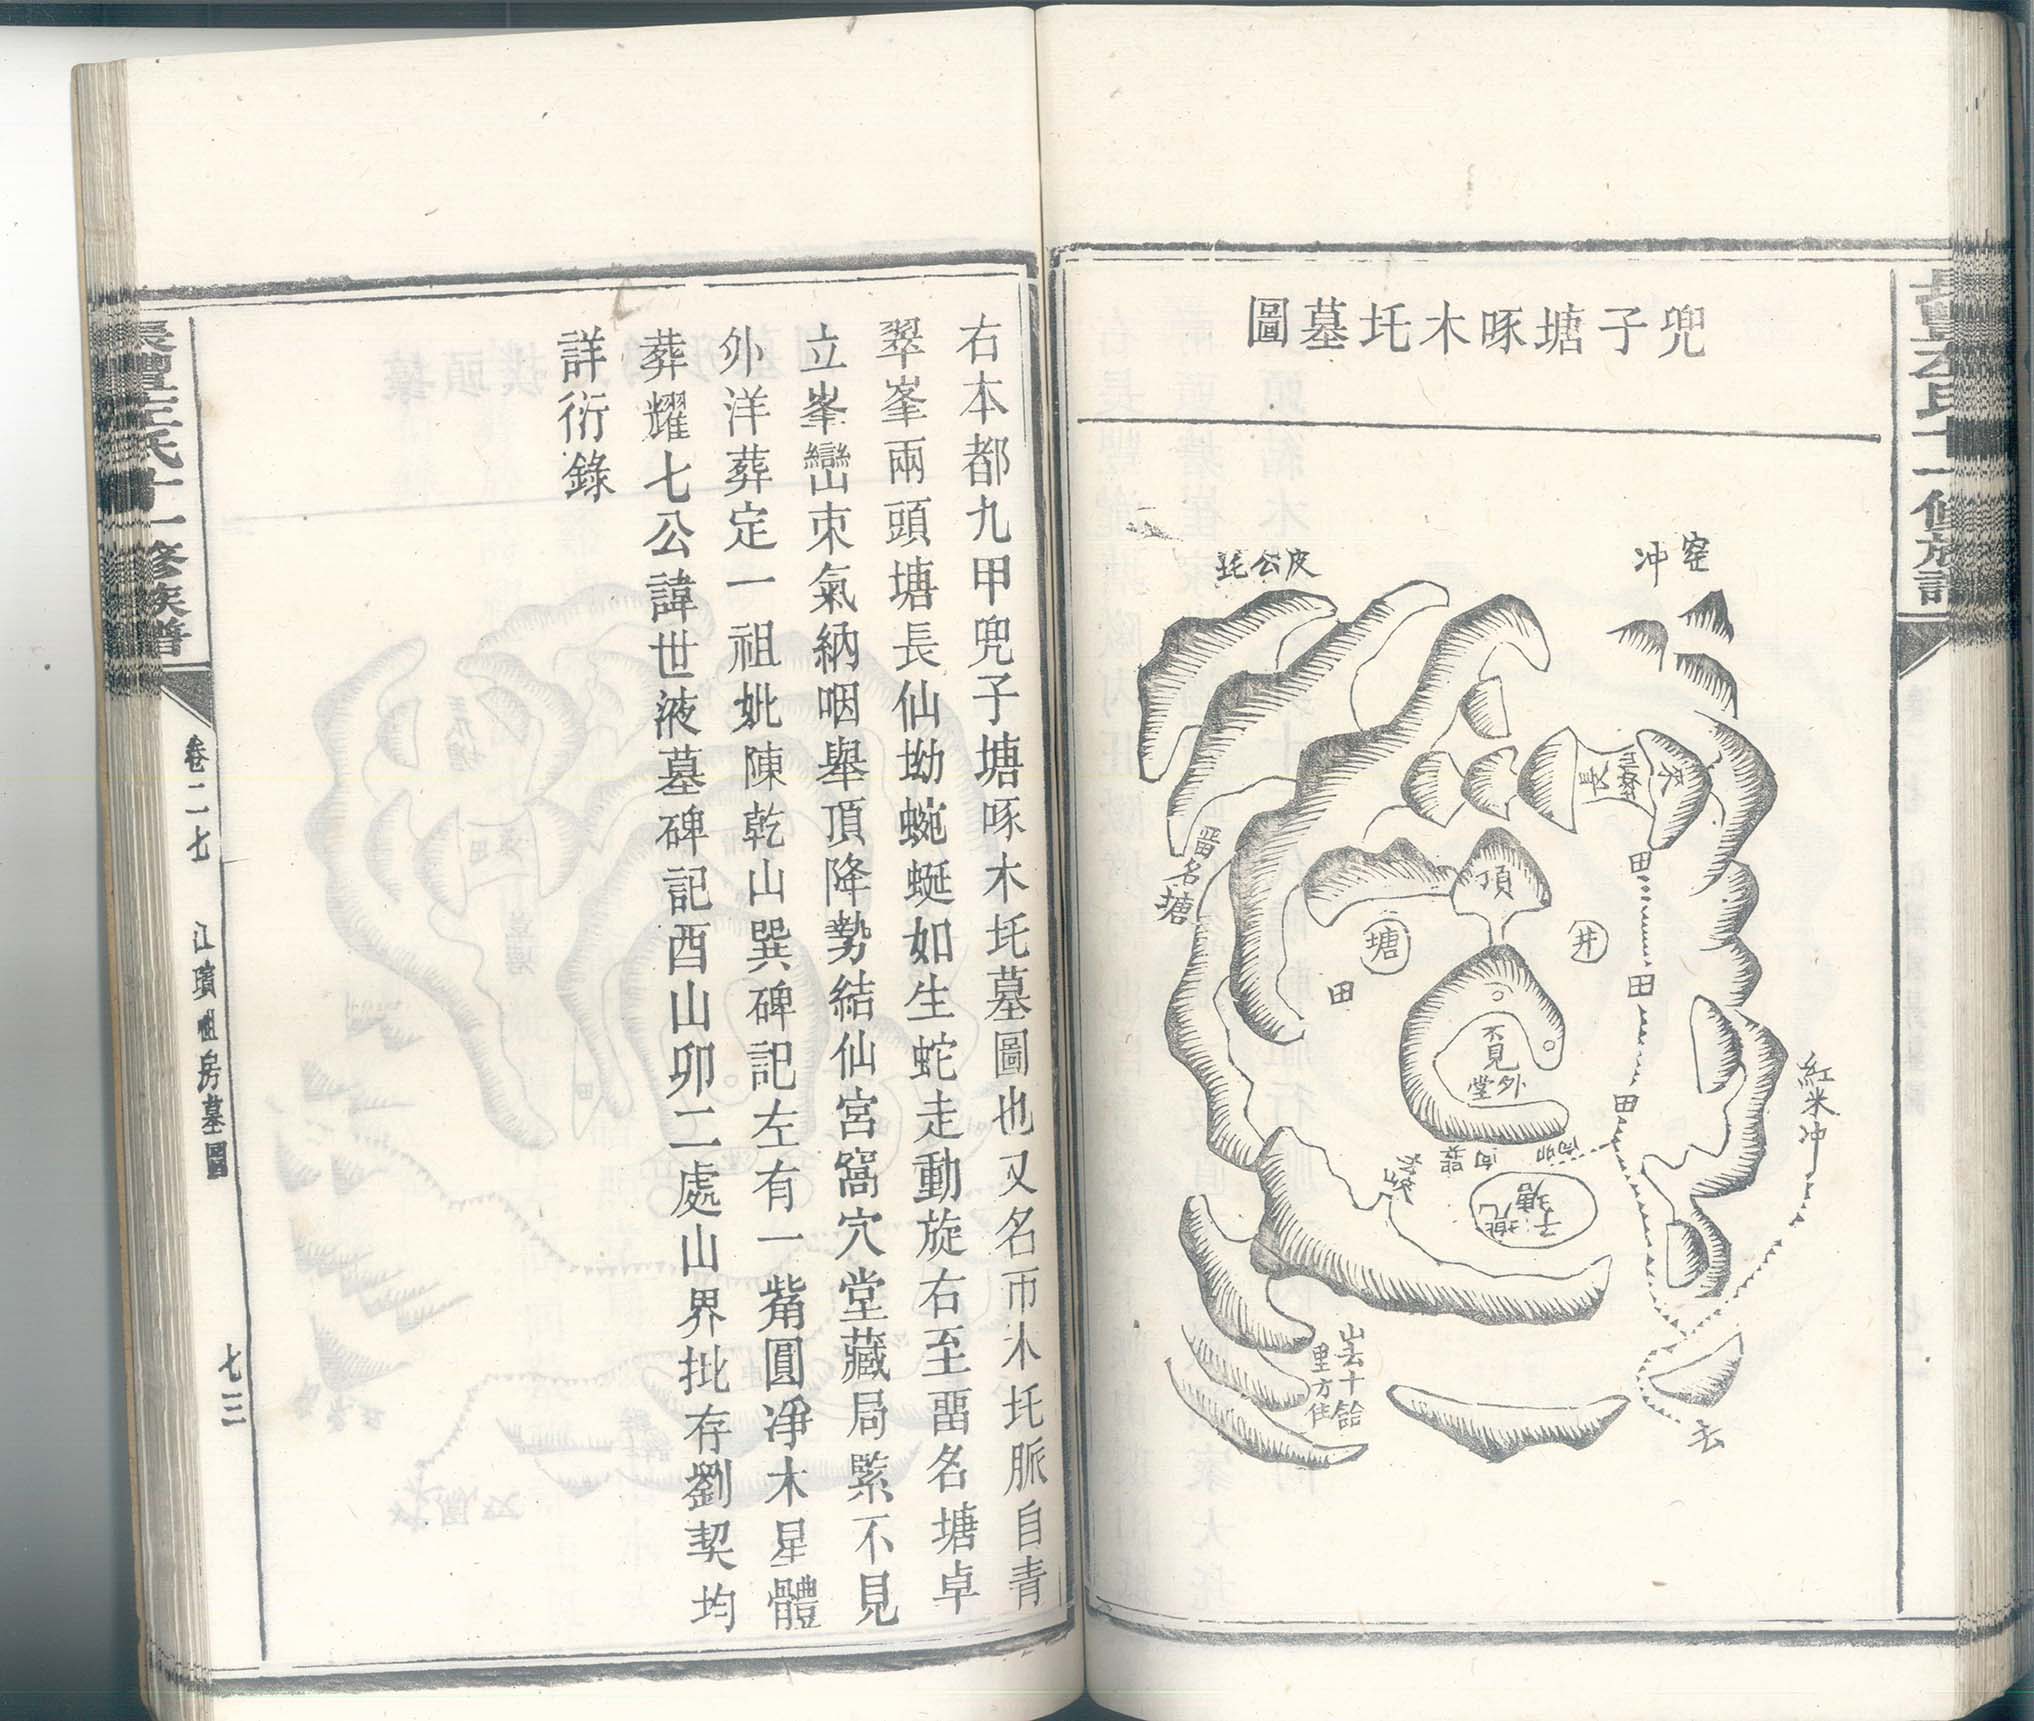 兜子塘啄木圫墓圖
窑冲
皮公圫
番名塘
頂
塘
井
田
田
田
田
不見
外堂
兜子塘
紅米冲
去
右本都九甲兜子塘啄木圫墓圖也又名帀木圫脈自青
翠峯兩頭塘長仙坳蜿蜒如生蛇走動旋右至畨名塘卓
立峯巒束氣納咽舉頂降勢結仙宮窩穴堂藏局緊不見
外洋葬定一祖妣陳乾山巽碑記左有一觜圓凈木星體
葬耀七公諱世液墓碑記酉山卯二處山界批存劉契均
詳衍錄
氏十一修族譜
卷二七
江瓆祖房墓圖
七三